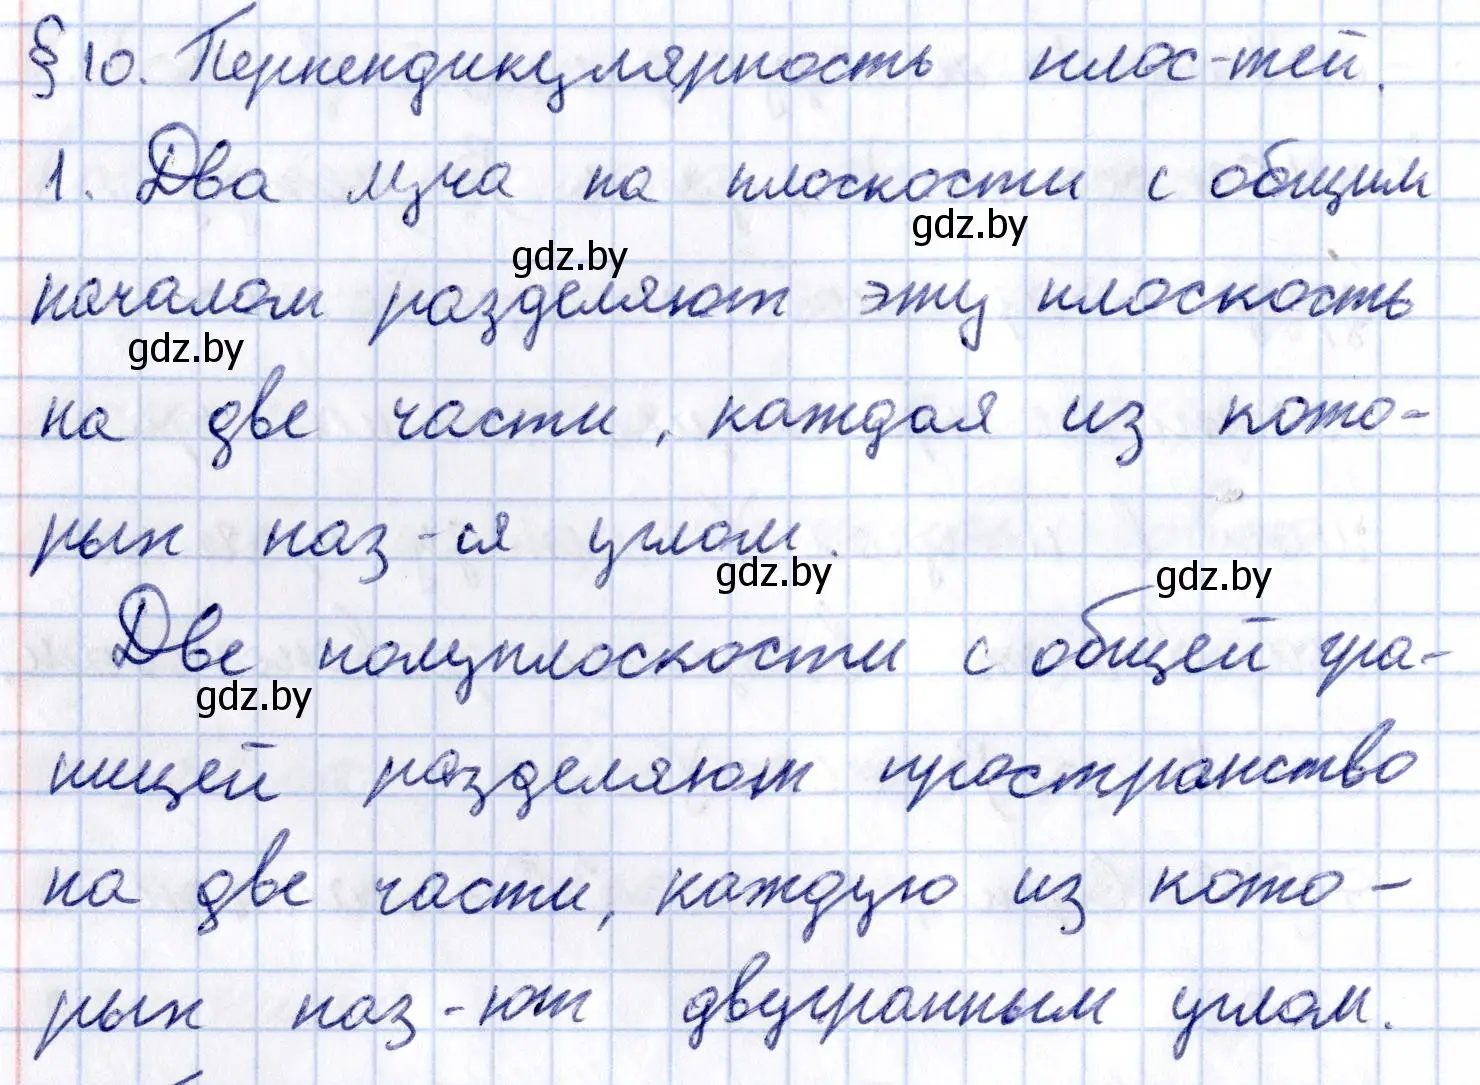 § 10. Перпендикулярность плос-тей.
1. Два луча на плоскости с общим
gdz.by
gdz.by
началом разделяют эту плоскость
gdz.by
на две части, каждая из кото-
рых наз-ся углом.
gdz.by
gdz.by
Две полуплоскости с общей гра-
gdz.by
ницей разделяют пространство
на две части, каждую из кото-
рых наз-ют двугранным углом.